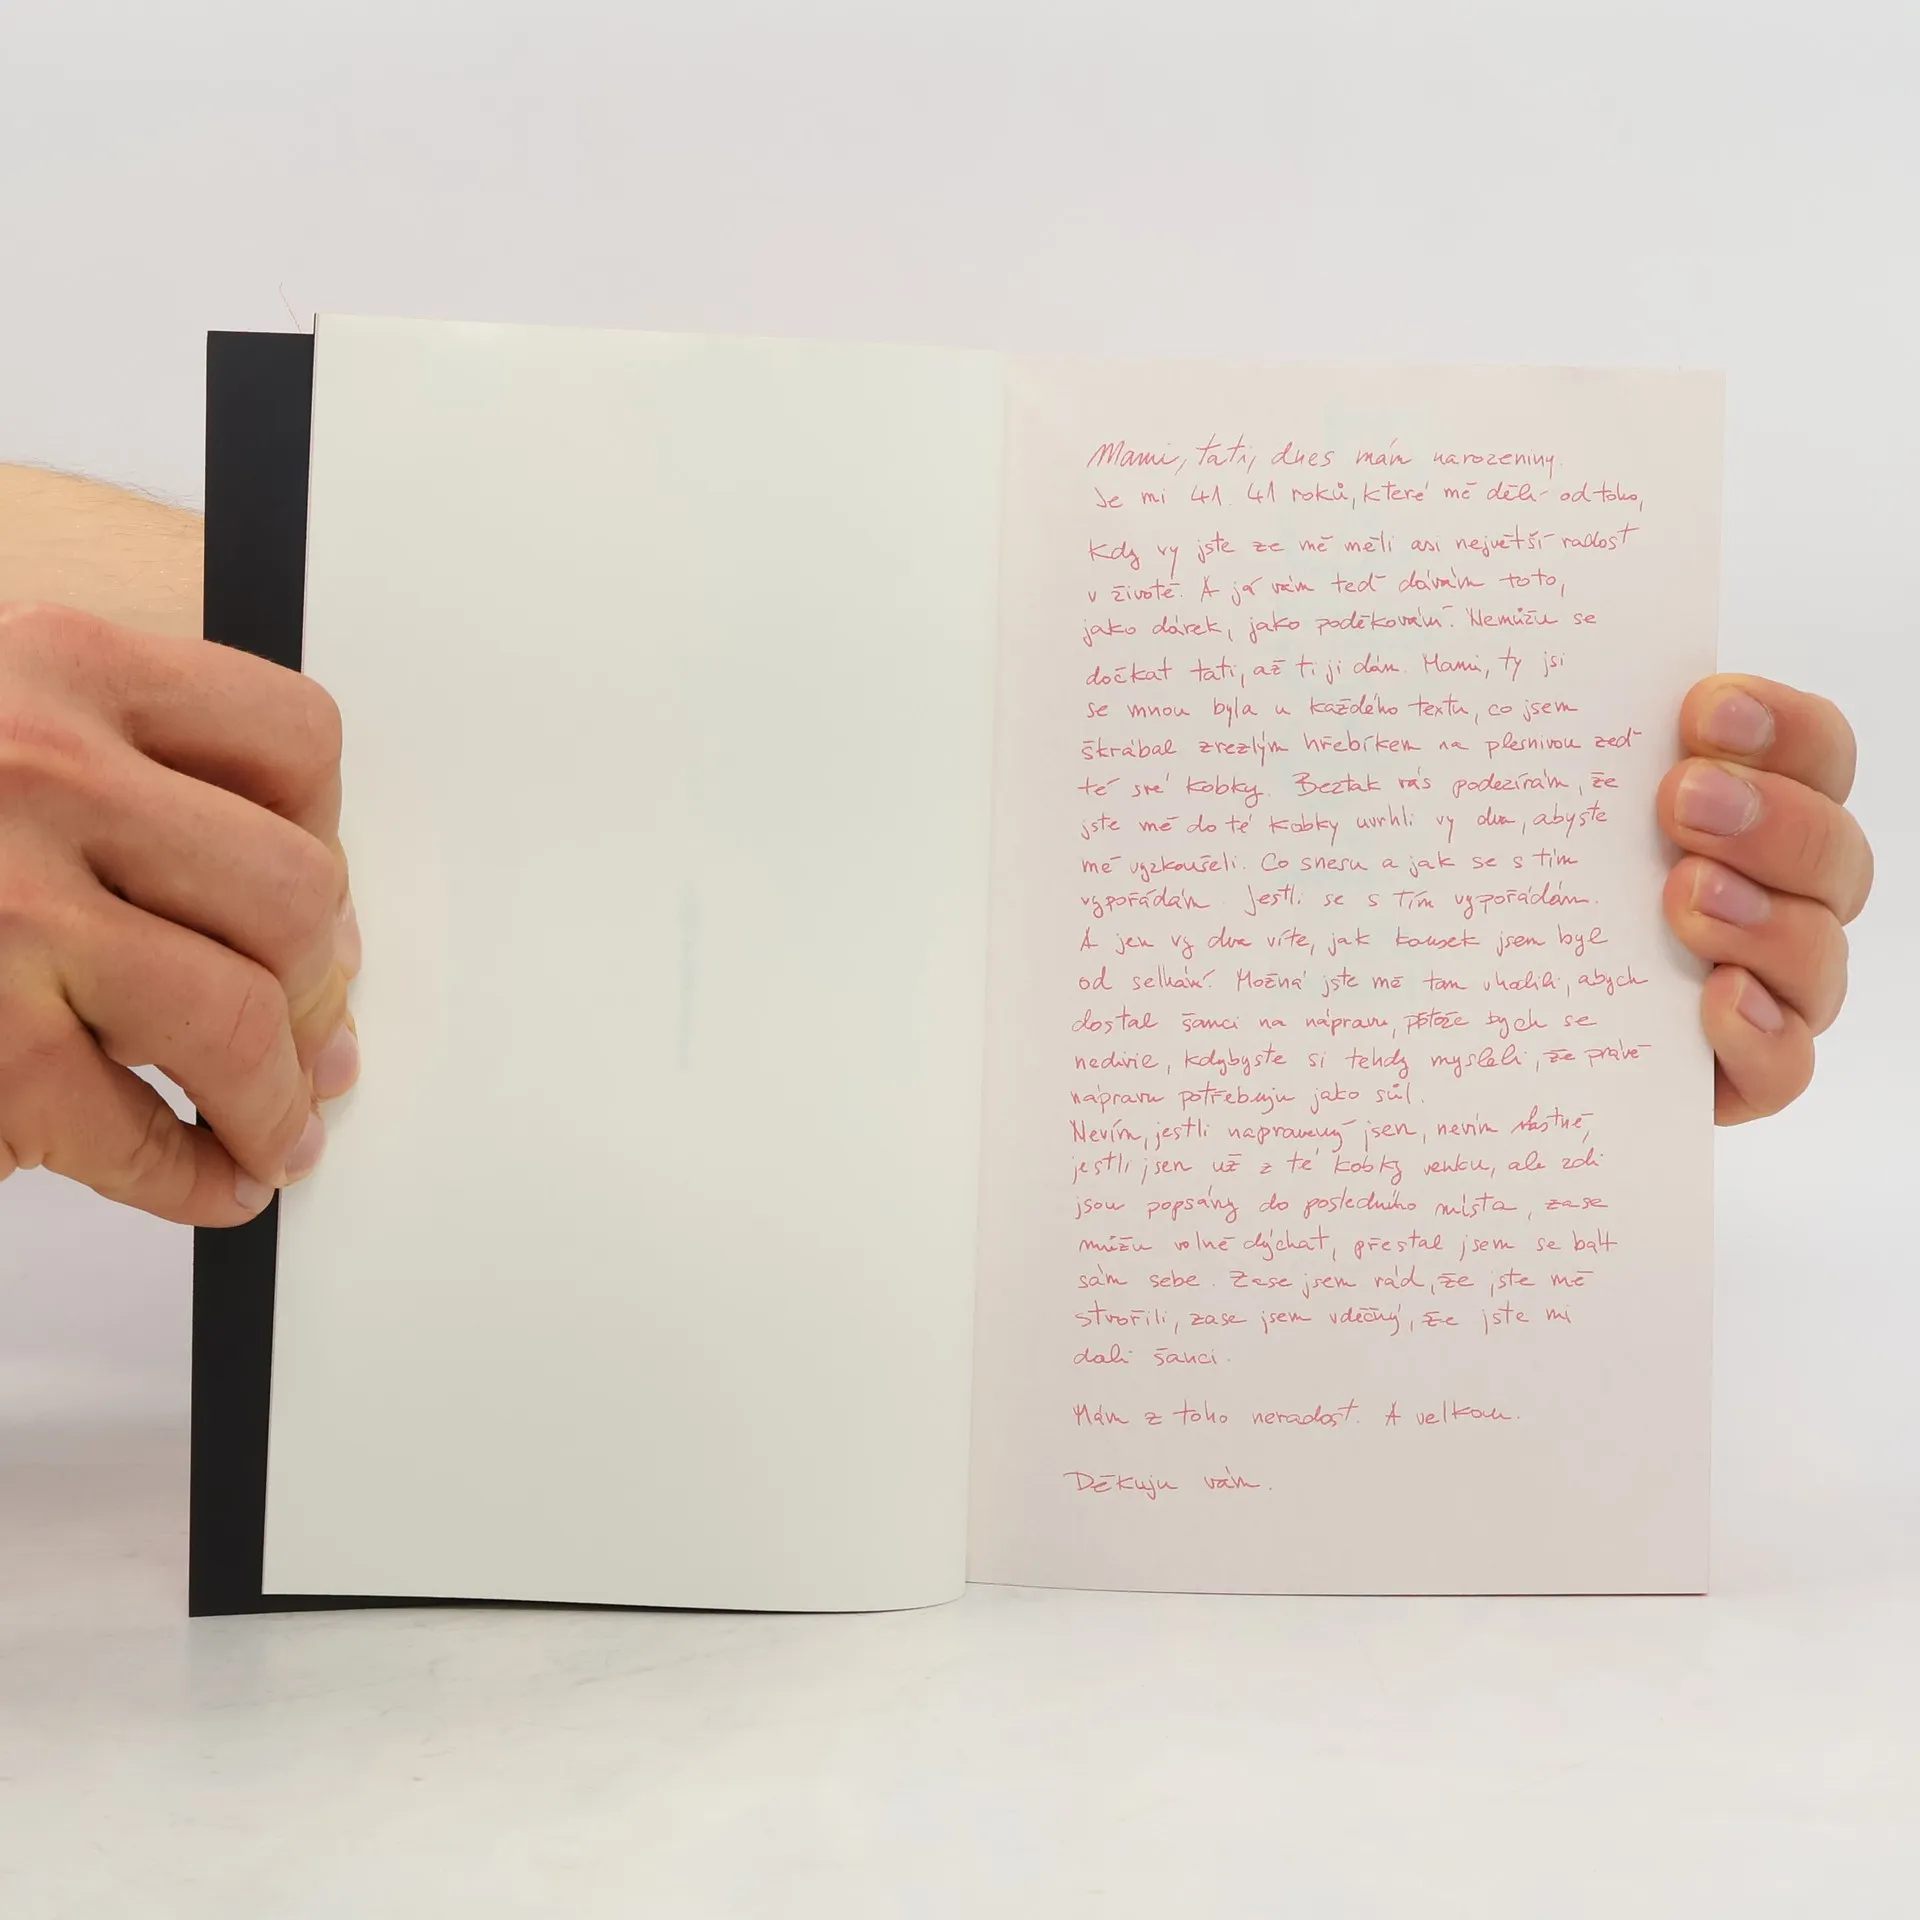 Mami, tati, dnes mám narozeniny.
Je mi 41. 41 roků, které mě dělí od toho,
kdy vy jste ze mě měli asi největší radost
v životě. A já vám teď dávám toto,
jako dárek, jako poděkování. Nemůžu se
dočkat tati, až ti ji dám. Mami, ty jsi
se mnou byla u každého textu, co jsem
škrábal zrezlým hřebíkem na plesnivou zeď
té své kobky. Beztak vás podezírám, že
jste mě do té kobky uvrhli vy dva, abyste
mě vyzkoušeli. Co snesu a jak se s tím
vypořádám. Jestli se s tím vypořádám.
A jen vy dva víte, jak kousek jsem byl
od selhání. Možná jste mě tam uvalili, abych
dostal šanci na nápravu, protože bych se
nedivil, kdybyste si tehdy mysleli, že právě
nápravu potřebuju jako sůl.
Nevím, jestli napravený jsem, nevím vlastně,
jestli jsem už z té kobky venku, ale zdi
jsou popsány do posledního místa, zase
můžu volně dýchat, přestal jsem se bát
sám sebe. Zase jsem rád, že jste mě
stvořili, zase jsem vděčný, že jste mi
dali šanci.
Mám z toho neradost. A velkou.
Děkuju vám.